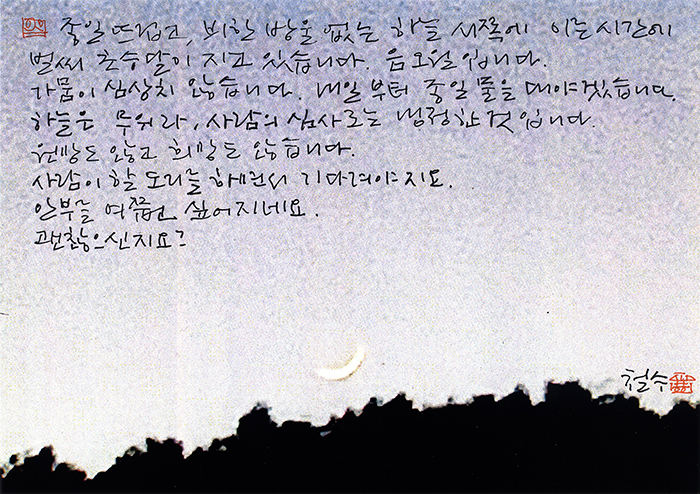 종일 뜨겁고, 비한 방울 없는 하늘 서쪽에 이른시간에
벌써 초승달이 지고 있습니다. 음오월입니다.
가뭄이 심상치 않습니다. 내일부터 종일 물을 대야겠습니다.
하늘은 무위라, 사람의 심사로는 냉정한 것입니다.
원망도 않고 희망도 않습니다.
사람이 할 도리를 하면서 기다려야지요.
안부를 여쭙고 싶어지네요.
괜찮으신지요?
철수